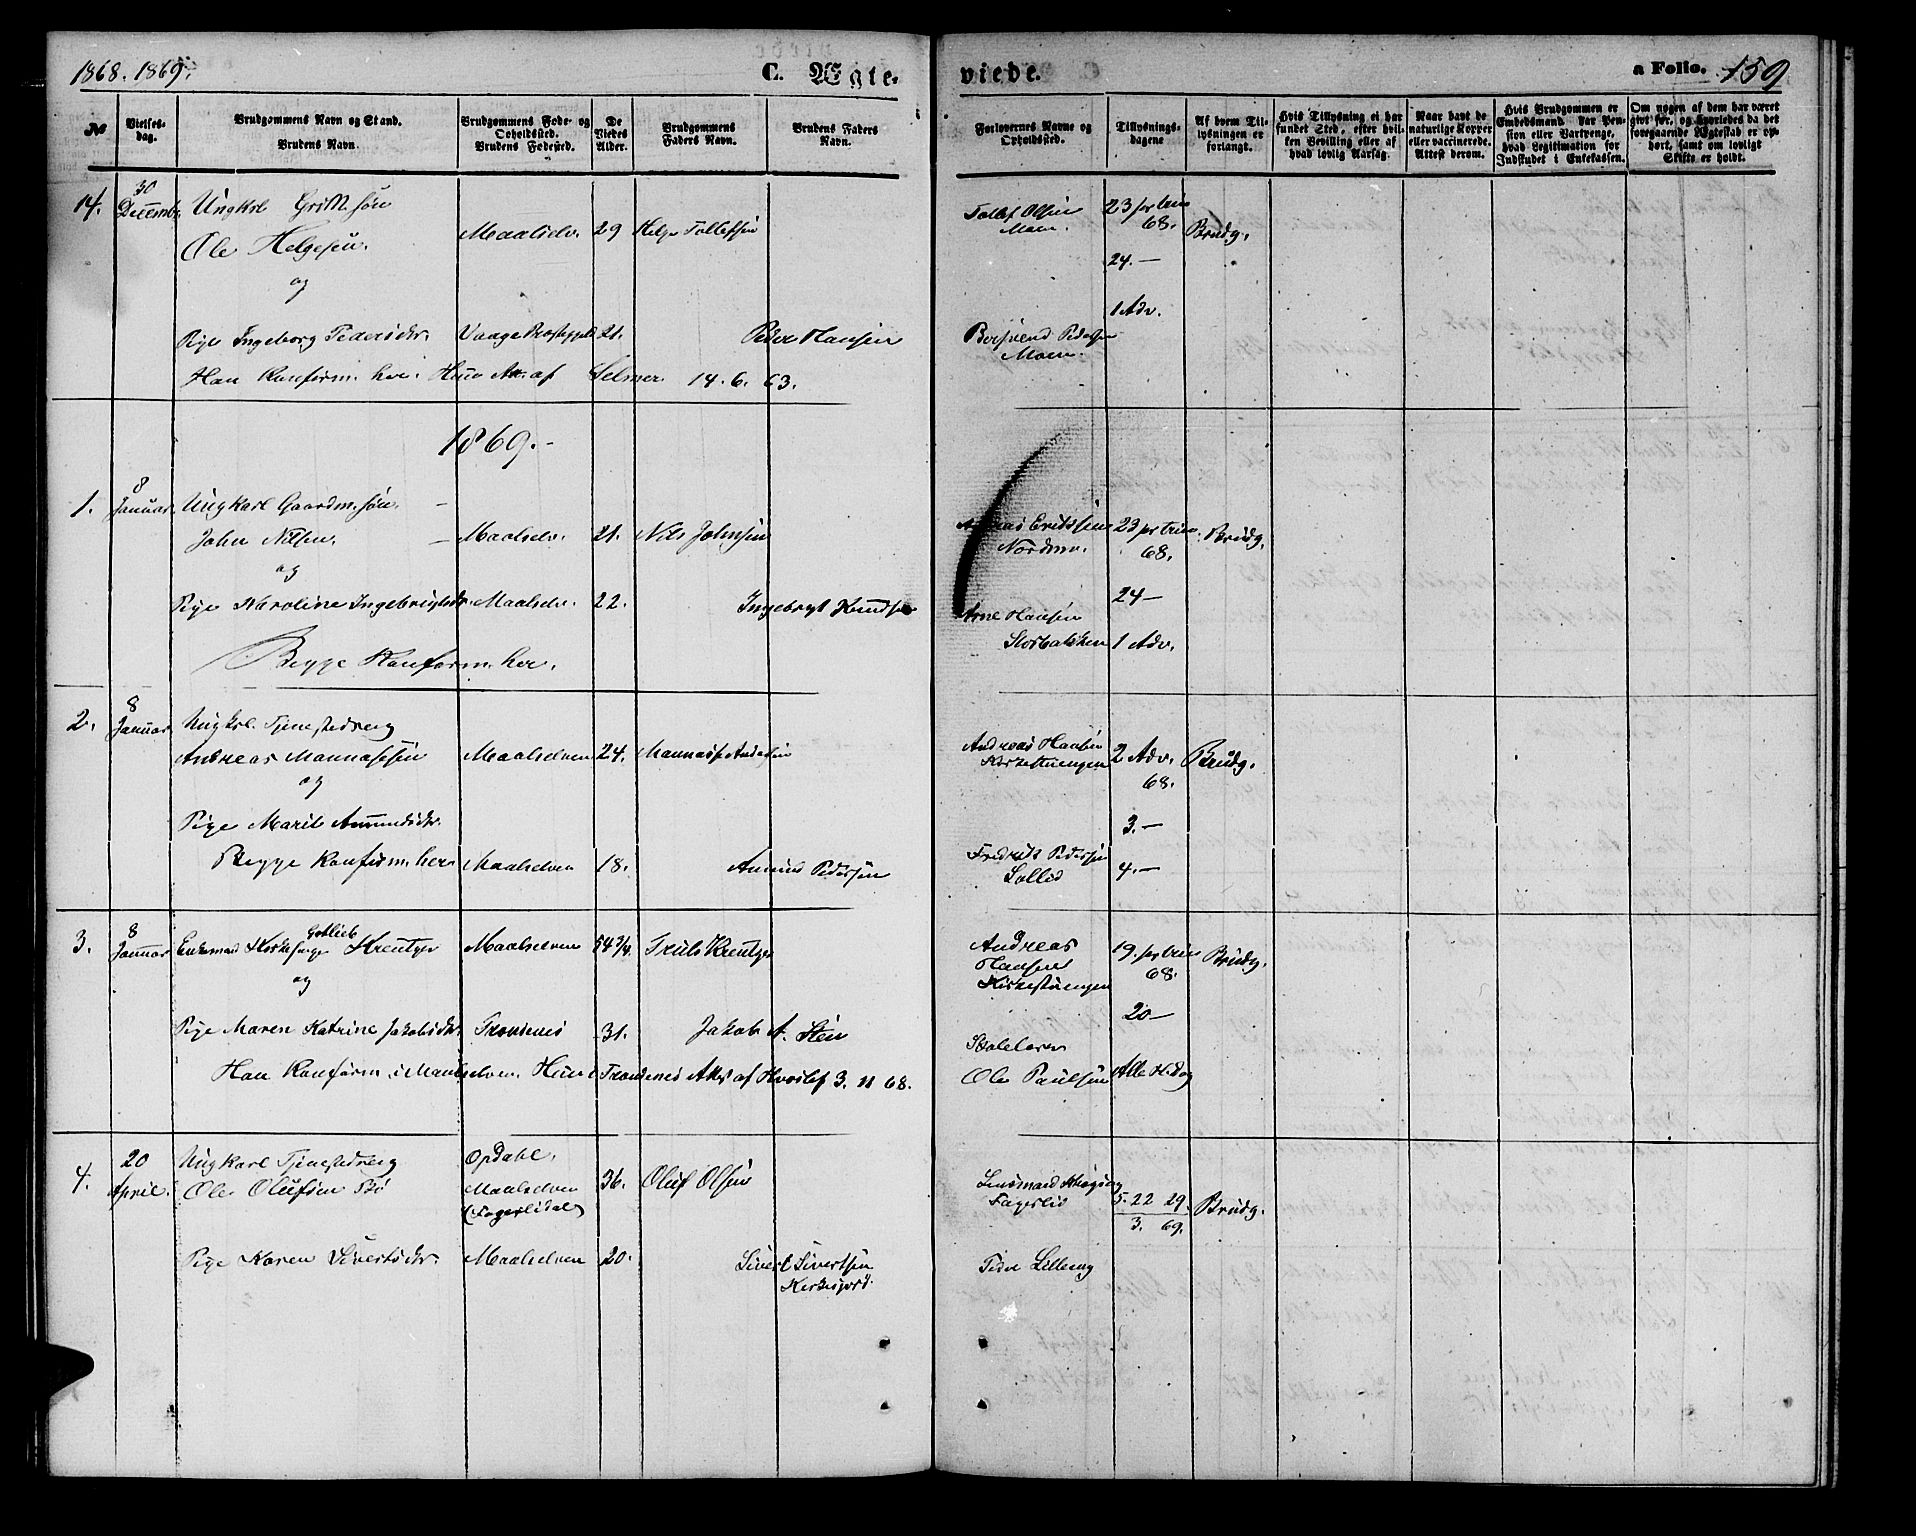 1868. 1869.
C. Egte-
viede.
a Folio. 159
№
Vielses-
dag.
Brudgommens Navn og Stand.
Brudens Navn.
Brudgommens Føde- og
Opholdssted.
Brudens Fødested.
De
Viedes
Alder.
Brudgommens
Faders Navn.
Brudens Faders
Navn.
Forlovernes Navne og
Opholdssted.
Tillysnings-
dagene
Af hvem Til-
lysningen er
forlangt.
Hvis Tillysning ei har
fundet Sted, efter hvil-
ken Bevilling eller af
hvad lovlig Aarsag.
Naar havt de
naturlige Kopper
eller vaccinerede.
Attest derom.
Hvis Brudgommen er
Embedsmand har Pen-
sion eller Vartpenge,
hvad Legitimation for
Indskudet i Enkekassen.
Om nogen af dem har været
givt før, og hvorledes da det
foregaaende Ægteskab er op-
hørt, samt om lovligt
Skifte er holdt.
14. 30 Decemb. Ungkl
Ole Helgesen. Maalselv. 29 Helge Tollefsen
og
Pige Ingeborg Pedersdr. Vaage Præstegjeld 21. Peder Hansen
Han Konfirm. her. Hun Att. af Selmer 14. 6. 63.
Tollef Olsen
Moen.
23 p. trin
68. Brudg.
24. —
1 Adv.
Pedersen
Moen.
1869.-
1. 8 Januar. Ungkarl Gaardm. søn.
John Nilsen. Maalselv. 21. Nils Johnsen
og
Pige Karoline Ingebrigtsdr. Maalselv. 22. Ingebrigt Knudsen
Begge Konfirm. her.
Eriksen
Nordmo.
23 p. trin.
68. Brudg.
24 —
Arne Hansen
Storbakken 1 Adv.
2. 8 Januar Ungkrl. Tjenestedreng
Andreas Mannassen Maalselven 24. Mannasse Andersen
og
Pige Marit Amundsdr.
Begge Konfirm. her Maalselven 18. Amund Pedersen
Andreas Hansen
Kirkestuengen 2 Adv. Brudg.
68.
3. —
Fredrik Pedersen
Sollid 4. —
3. 8 Januar Enkemand Kirkesanger Gotlieb Kreutzer Maalselven 54 3/4. Truls Kreutzer
og
Pige Maren Katrine Jakobsdr. Trondenes 31. Jakob A. Sten
Han Konfirm. i Maalselven. Hun i Trondenes Att. af Hvoslef 3. 11 68.
Andreas
Hansen
Kirkestuengen
19. p. trin
68. Brudg.
20 —
Skolelærer
Ole Paulsen
4. 20 April. Ungkarl Tjenestedreng Opdahl.
Ole Olufsen Bø Maalselven 36. Oluf Olsen
(Fagerlidal)
Pige Karen Sivertsdr. Maalselven 20. Sivert Sivertsen
Kirkesjord.
Lensmand
Fagerlid
5. 22 29.
3. 69. Brudg.
Peder